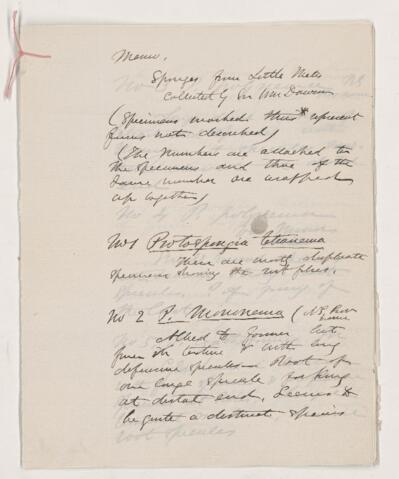 Memo.
Sponges from Little Metis
Collected by Sir Wm Dawson
(Specimens marked thus * represent
forms not described)
(The Numbers are attached to
the specimens and those of the
same number are wrapped
up together)
No 1 Protospongia tetranema
There are mostly duplicate
specimens showing the root
No 2 P. Mononema (
Allied to former but
finer in texture & with long
defensive spicules. Root of
one large spicule
at distal end. Seems to
be quite a distinct species